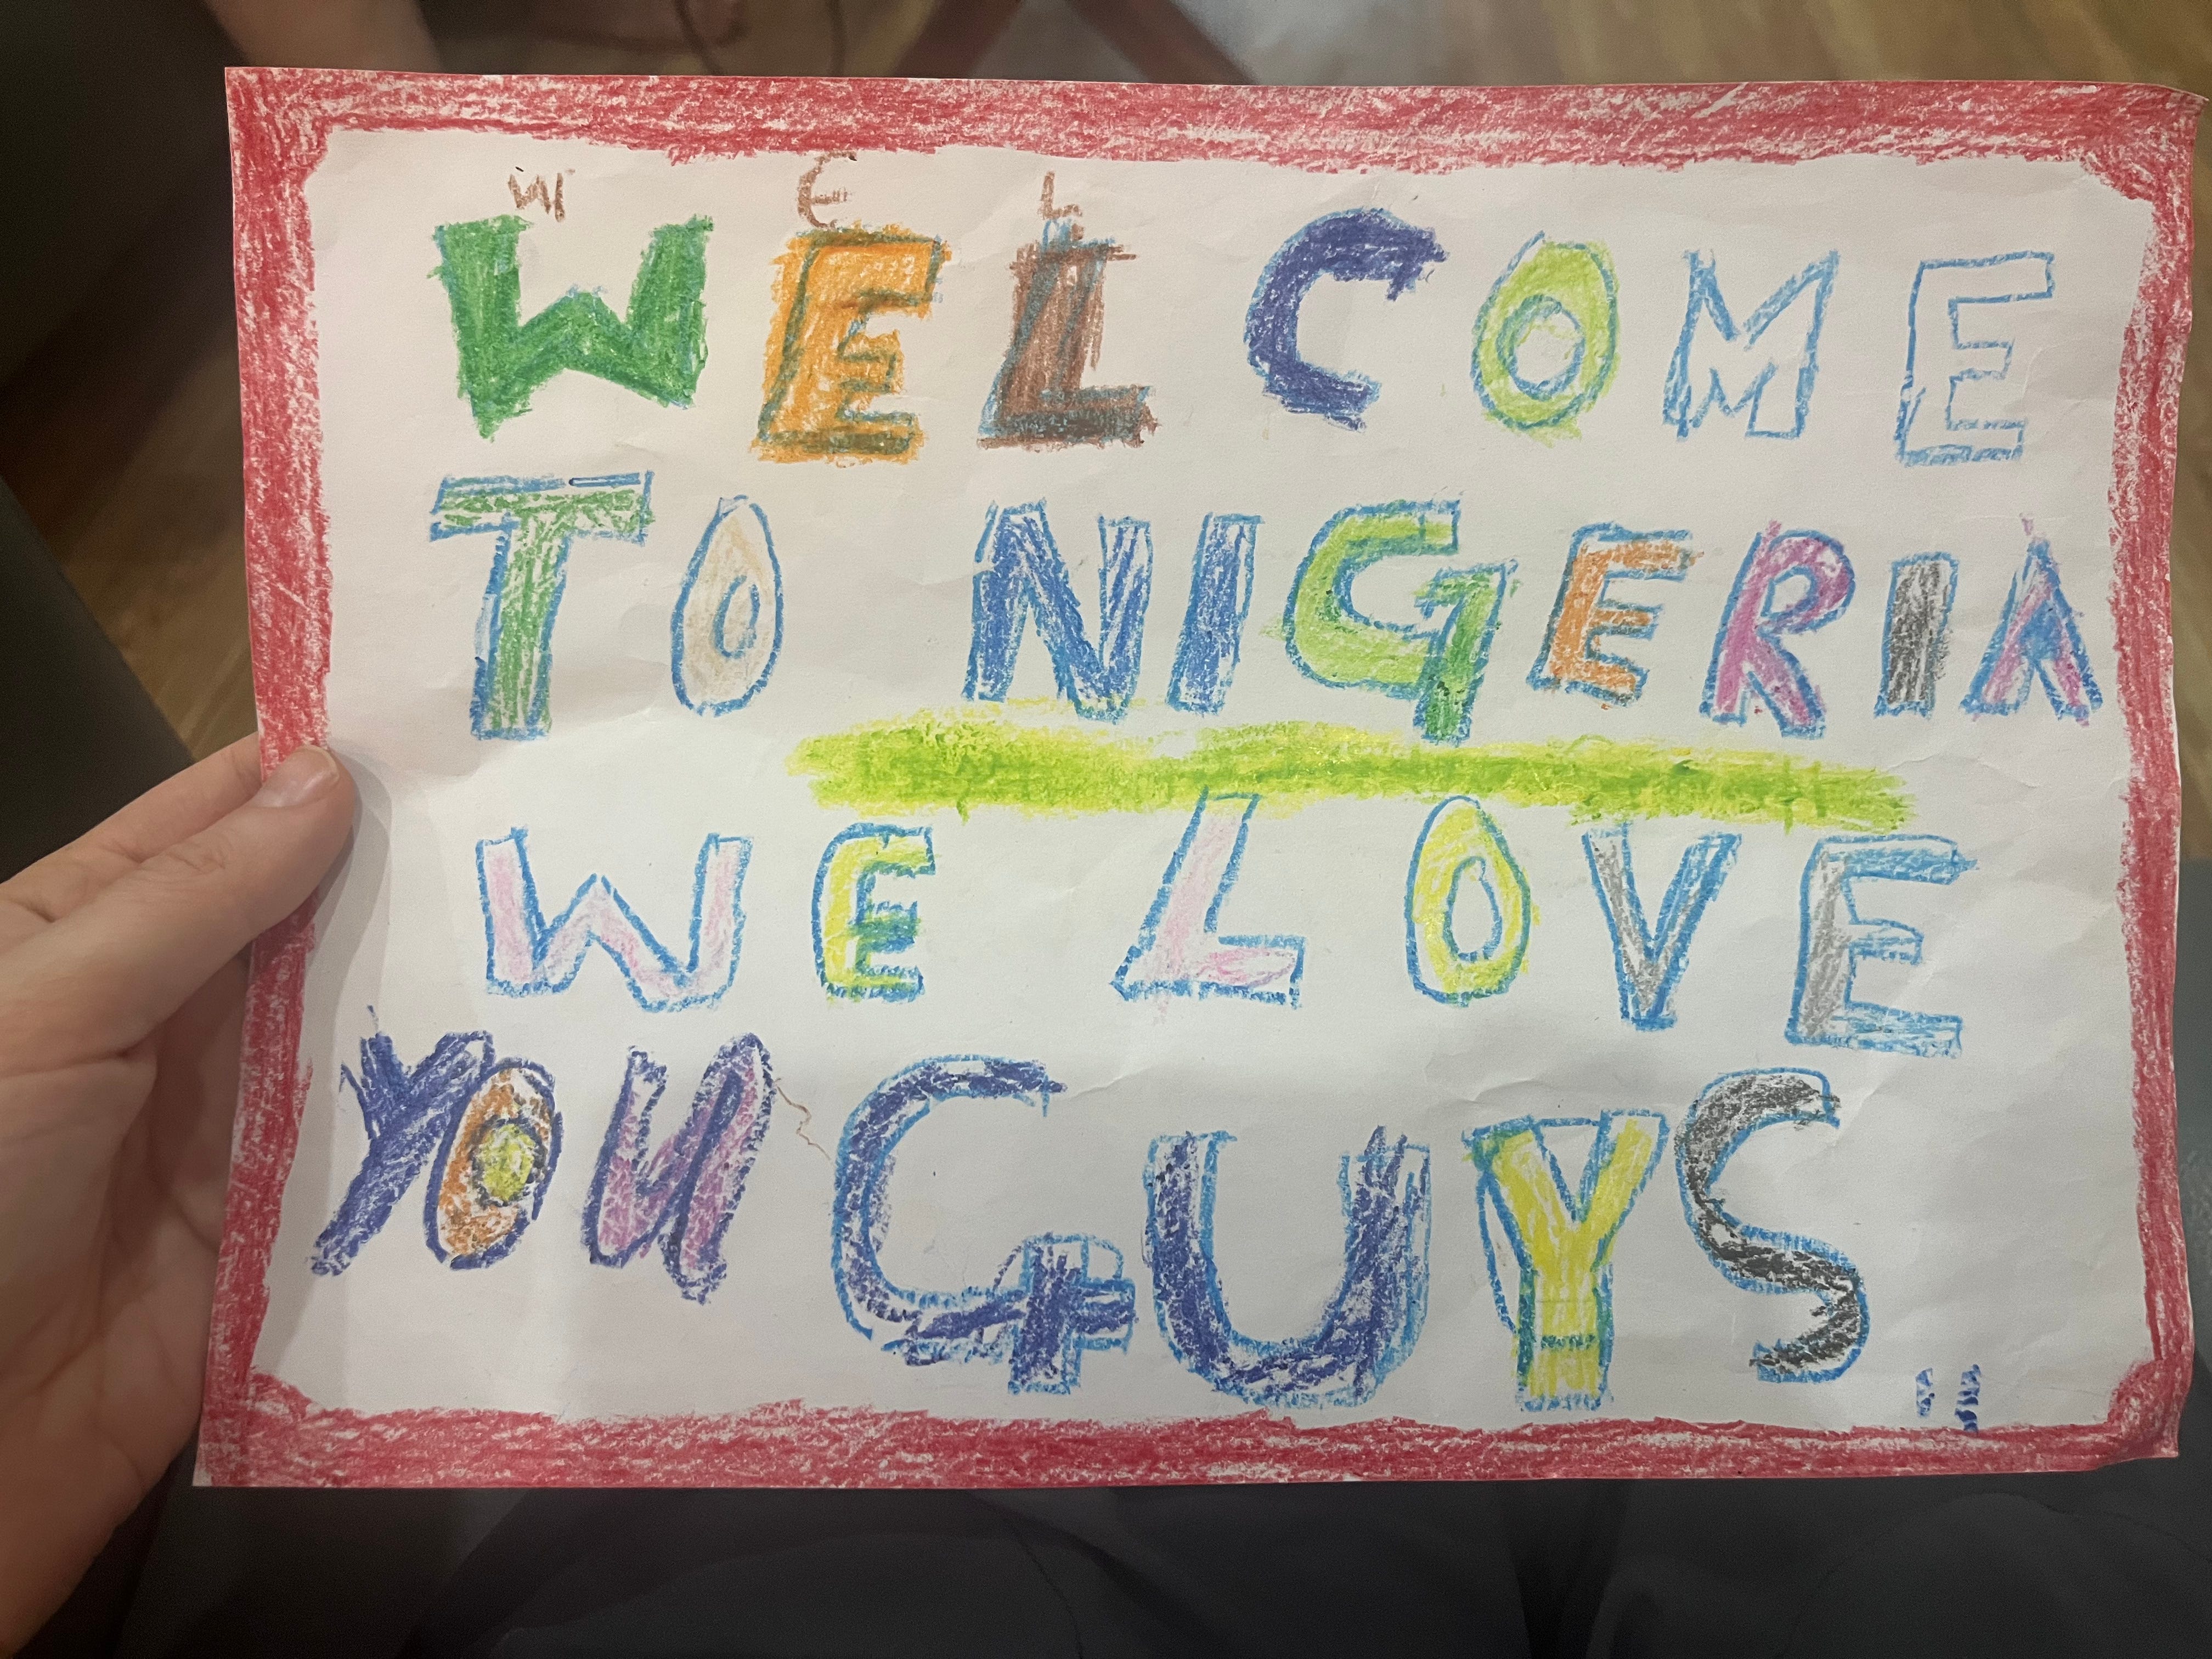 W E L
WELCOME
TO NIGERIA
WE LOVE
YOU GUYS